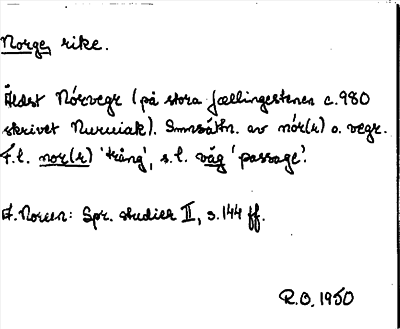 Norge, rike.
Äldst Nórvegr (på stora Jællingestenen c. 980
skrivet Nuruiak). Smnsättn. av nór(r) o. vegr.
F.l. nor(r) 'trång', s.l. väg 'passage'.
A. Noreen: Spr. studier II, s. 144 ff.
R.O. 1950